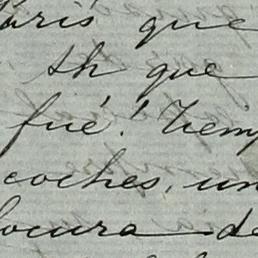 París que
sh que
fué! Tiemp
coches, un
locura de